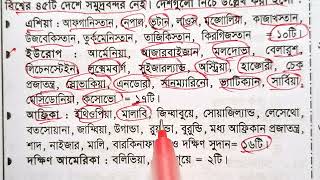 বিশ্বের ৪৫টি দেশে সমুদ্রবন্দর নেই। দেশগুলো নিচে উল্লেখ করা হলো
এশিয়া : আফগানিস্তান, নেপাল, ভুটান, লাওস, মঙ্গোলিয়া, কাজাখস্তান,
উজবেকিস্তান, তুর্কমেনিস্তান, তাজিকিস্তান, কিরগিজস্তান = ১০টি।
ইউরোপ : আর্মেনিয়া, আজারবাইজান, মলদোভা, বেলারুশ,
লিচেনস্টেইন, লুক্সেমবার্গ, সুইজারল্যান্ড, অস্ট্রিয়া, হাঙ্গেরী, চেক
প্রজাতন্ত্র, স্লোভাকিয়া, এনডোরা, সানম্যারিনো, ভ্যাটিকান, সার্বিয়া,
মেসিডোনিয়া, কসোভো = ১৭টি।
আফ্রিকা : ইথিওপিয়া, মালাবি, জিম্বাবুয়ে, সোয়াজিল্যান্ড, লেসেথো,
বতসোয়ানা, জাম্বিয়া, উগান্ডা, রুয়ান্ডা, বুরুন্ডি, মধ্য আফ্রিকান প্রজাতন্ত্র,
শাদ, নাইজার, মালি, বারকিনাফাসো ও দক্ষিণ সুদান= ১৬টি।
দক্ষিণ আমেরিকা : বলিভিয়া, = ২টি।